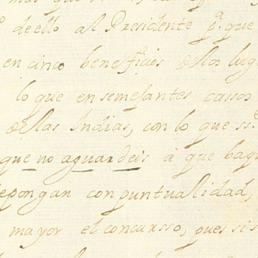 de ello al Presidente p.ª que
en cinco beneficios de los lug
lo que en semejantes cassos
de las Indias, con lo que ss.
que no aguardeis à que bag
epongan con puntualidad,
mayor el concursso, pues sis